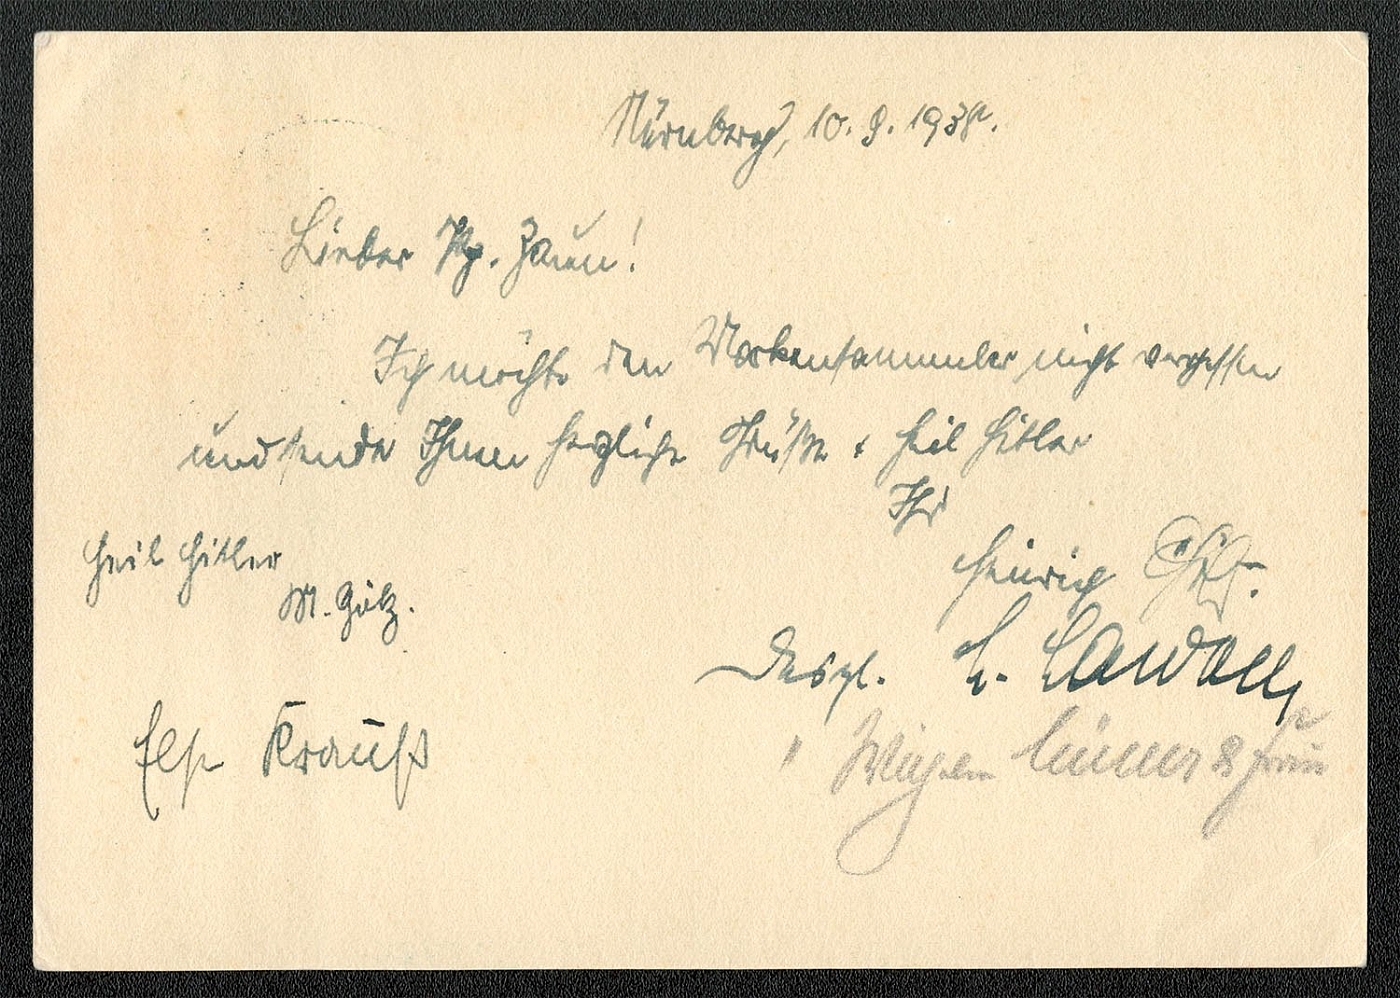 Nürnberg, 10. 9. 1938.
Lieber Pg. Zaun!
Ich möchte den Markensammler nicht vergessen
und sende Ihnen herzliche Grüße & Heil Hitler
Ihr
Heinrich
Heil Hitler
M. Götz.
Desgl. L.
Else Krauß
" &